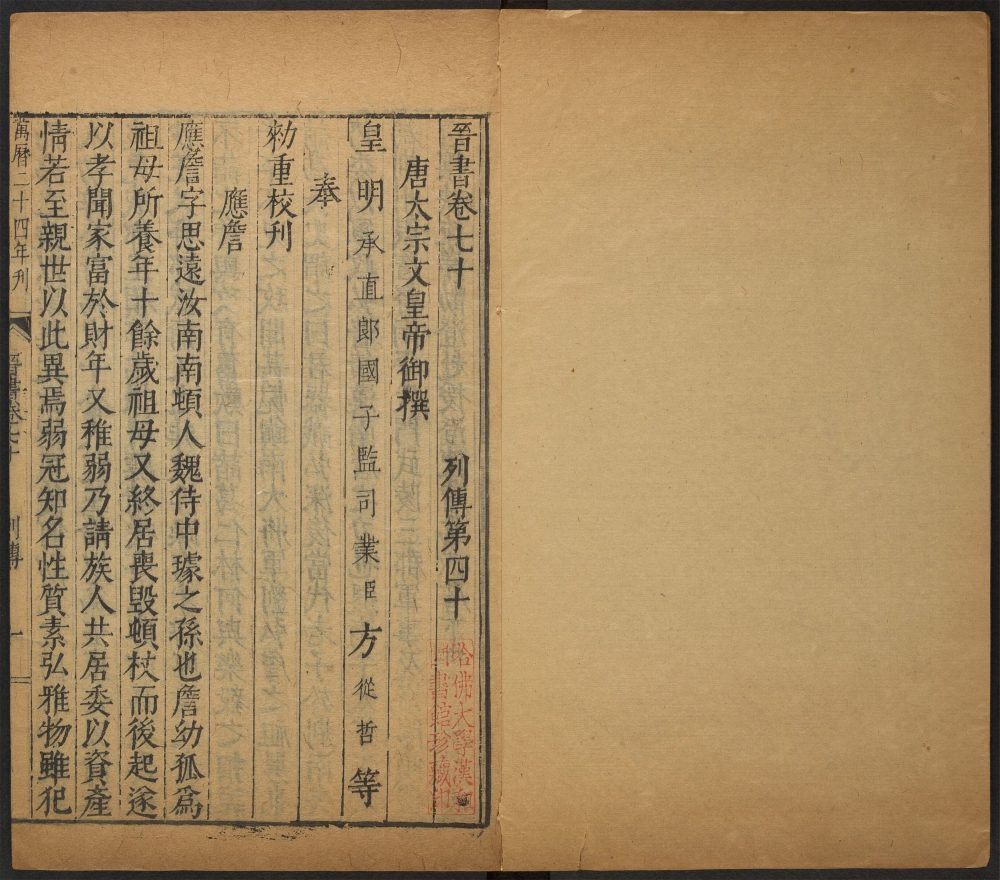 晉書卷七十 列傳第四十
唐太宗文皇帝御撰
皇明承直郎國子監司業臣方從哲等
奉
勑重校刊
應詹
應詹字思遠汝南南頓人魏侍中璩之孫也詹幼孤爲
祖母所養年十餘歲祖母又終居喪毀頓杖而後起遂
以孝聞家富於財年又稚弱乃請族人共居委以資產
情若至親世以此異焉弱冠知名性質素弘雅物雖犯
萬曆二十四年刊 晉書卷七十 列傳 一
哈佛大學漢和
圖書館珍藏印